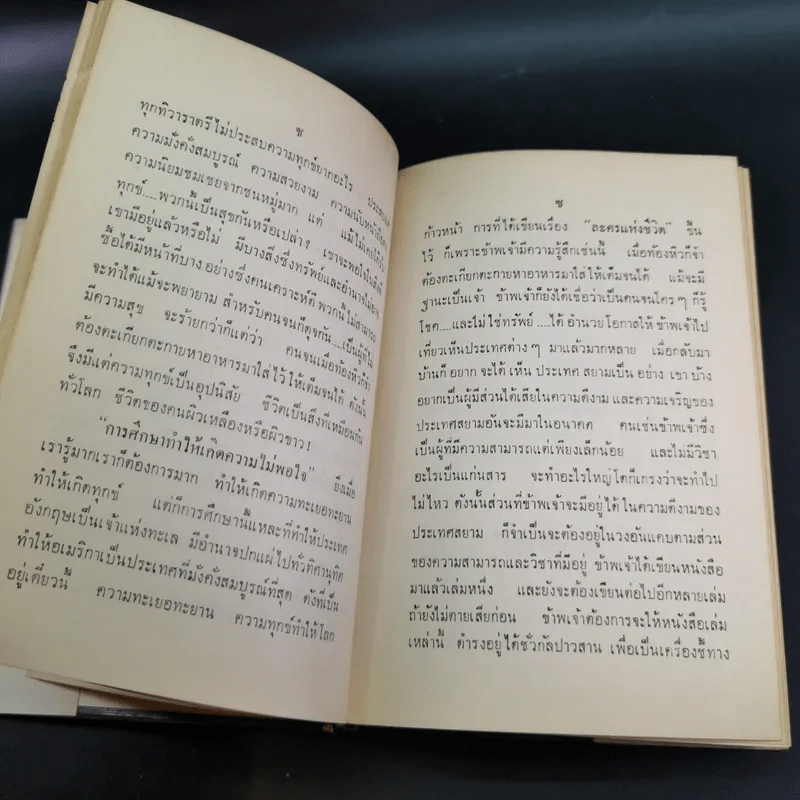 ช
ทุกทิวาราตรีไม่ประสบความทุกข์ยากอะไร ประกอบด้วย
ความมั่งคั่งสมบูรณ์ ความสวยงาม ความนับหน้าถือตา
ความนิยมชมเชยจากชนหมู่มาก แต่ แม้ไม่เคยได้รับ
ทุกข์....พวกนี้เป็นสุขกันหรือเปล่า? เขาจะพอใจในสิ่งที่
เขามีอยู่แล้วหรือไม่ มีบางสิ่งซึ่งทรัพย์และอำนาจไม่อาจ
ซื้อได้มีหน้าที่บางอย่างซึ่งคนเคราะห์ดี พวกนี้ไม่สามารถ
จะทำได้แม้จะพยายาม สำหรับคนจนก็ดุจกัน....เป็นผู้ที่ไม่
มีความสุข จะร้ายกว่าก็แต่ว่า คนจนเมื่อท้องหิวก็จำ
ต้องตะเกียกตะกายหาอาหารมาใส่ไว้ให้เต็มจนได้ ดังนั้น
จึงมีแต่ความทุกข์เป็นอุปนิสัย ชีวิตเป็นสิ่งที่เหมือนกัน
ทั่วโลก ชีวิตของคนผิวเหลืองหรือผิวขาว!
"การศึกษาทำให้เกิดความไม่พอใจ" ยิ่งเมื่อ
เรารู้มากเราก็ต้องการมาก ทำให้เกิดความทะเยอทะยาน
ทำให้เกิดทุกข์ แต่ก็การศึกษานี้แหละที่ทำให้ประเทศ
อังกฤษเป็นเจ้าแห่งทะเล มีอำนาจปกแผ่ไปทั่วทิศานุทิศ
ทำให้อเมริกาเป็นประเทศที่มั่งคั่งสมบูรณ์ที่สุด ดังที่เป็น
อยู่เดี๋ยวนี้ ความทะเยอทะยาน ความทุกข์ทำให้โลก
ซ
ก้าวหน้า การที่ได้เขียนเรื่อง "ละครแห่งชีวิต" ขึ้น
ไว้ ก็เพราะข้าพเจ้ามีความรู้สึกเช่นนี้ เมื่อท้องหิวก็จำ
ต้องตะเกียกตะกายหาอาหารมาใส่ให้เต็มจนได้ แม้จะมี
ฐานะเป็นเจ้า ข้าพเจ้าก็ยังได้เชื่อว่าเป็นคนจนใครๆ ก็รู้
โชค....และไม่ใช่ทรัพย์....ได้ อำนวยโอกาสให้ ข้าพเจ้าไป
เที่ยวเห็นประเทศต่างๆ มาแล้วมากหลาย เมื่อกลับมา
บ้านก็อยาก จะได้ เห็น ประเทศ สยามเป็น อย่าง เขา บ้าง
อยากเป็นผู้มีส่วนได้เสียในความดีงาม และความเจริญของ
ประเทศสยามอันจะมีมาในอนาคต คนเช่นข้าพเจ้าซึ่ง
เป็นผู้ที่มีความสามารถแต่เพียงเล็กน้อย และไม่มีวิชา
อะไรเป็นแก่นสาร จะทำอะไรใหญ่โตก็เกรงว่าจะทำไป
ไม่ไหว ดังนั้นส่วนที่ข้าพเจ้าจะมีอยู่ได้ในความดีงามของ
ประเทศสยาม ก็จำเป็นจะต้องอยู่ในวงอันแคบตามส่วน
ของความสามารถและวิชาที่มีอยู่ ข้าพเจ้าได้เขียนหนังสือ
มาแล้วเล่มหนึ่ง และยังจะต้องเขียนต่อไปอีกหลายเล่ม
ถ้ายังไม่ตายเสียก่อน ข้าพเจ้าต้องการจะให้หนังสือเล่ม
เหล่านี้ ดำรงอยู่ได้ชั่วกัลปาวสาน เพื่อเป็นเครื่องชี้ทาง